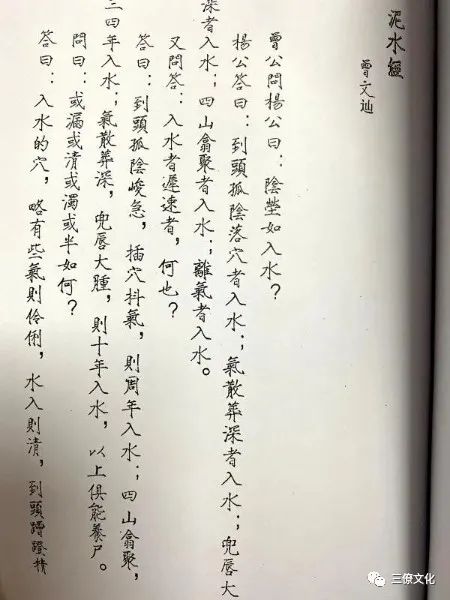 泥水經
曾文辿
曾公問楊公曰：陰塋如入水？
楊公答曰：到頭孤陰落穴者入水；氣散葬深者入水；兜唇大
者入水；四山翕聚者入水；離氣者入水。
又問答：入水者遲速者，何也？
答曰：到頭孤陰峻急，插穴抖氣，則周年入水；四山翕聚，
三四年入水；氣散葬深，兜唇大腫，則十年入水，以上俱能養尸。
問曰：或漏或清或濁或半如何？
答曰：入水的穴，略有些氣則伶俐，水入則清，到頭
三僚文化